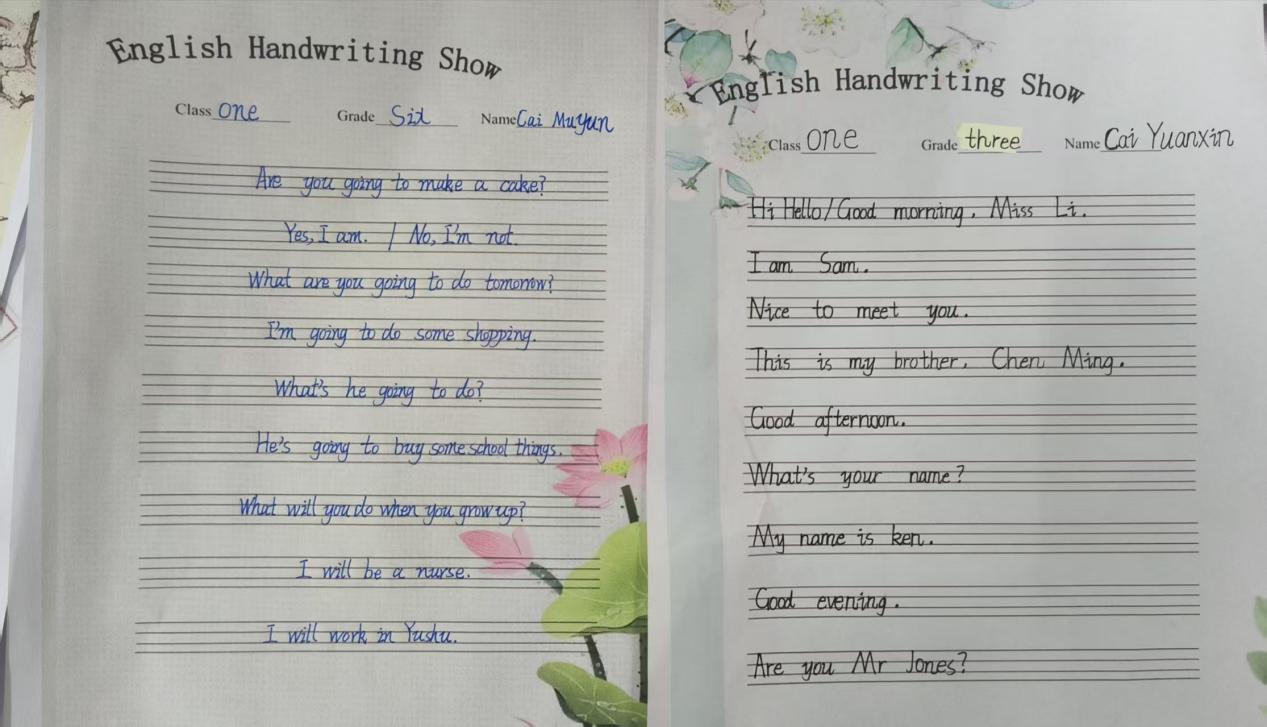 English Handwriting Show
Class one Grade Six Name Cai Muyun
Are you going to make a cake?
Yes, I am. / No, I'm not.
What are you going to do tomorrow?
I'm going to do some shopping.
What's he going to do?
He's going to buy some school things.
What will you do when you grow up?
I will be a nurse.
I will work in Yushu.
English Handwriting Show
Class one Grade three Name Cai Yuanxin
Hi Hello/Good morning, Miss Li.
I am Sam.
Nice to meet you.
This is my brother, Chen Ming.
Good afternoon.
What's your name?
My name is ken.
Good evening.
Are you Mr Jones?